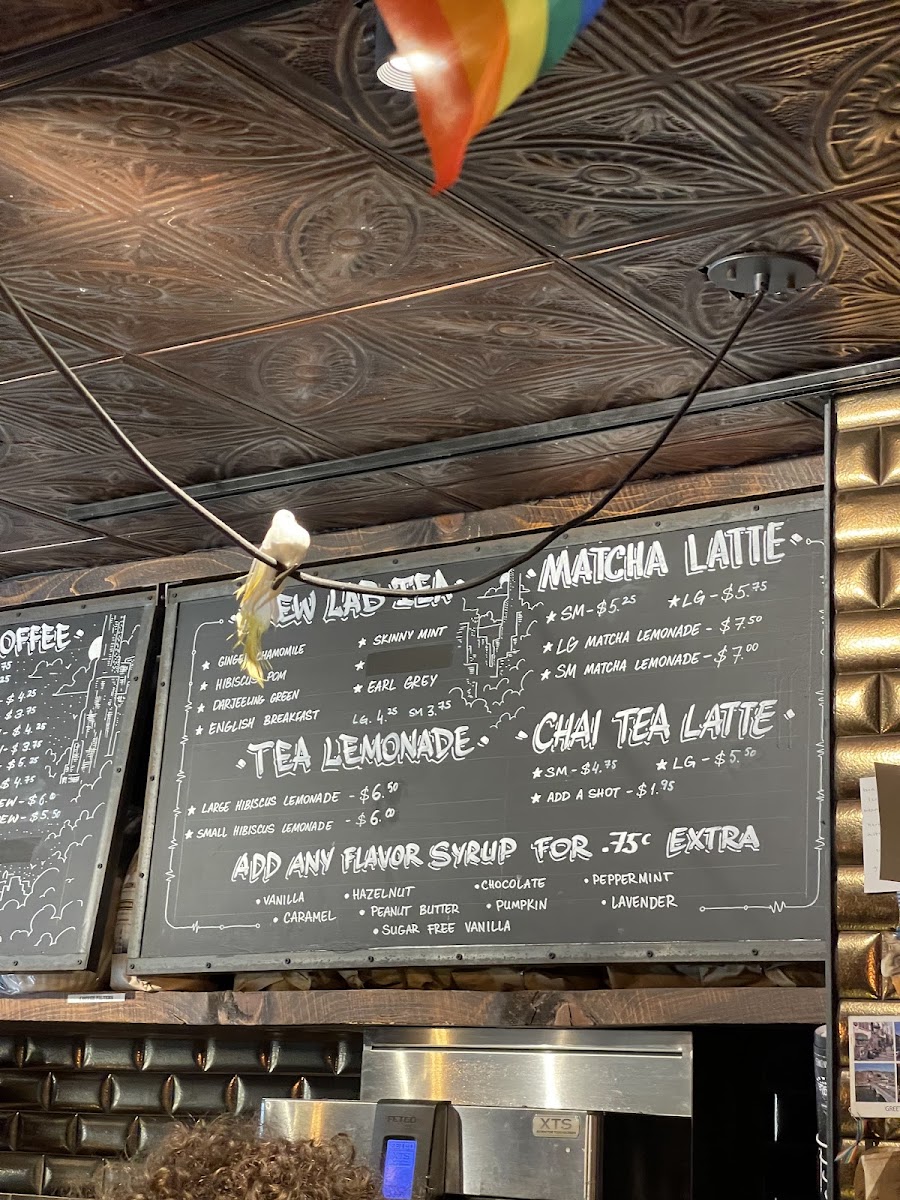 OFFEE
75
25
- $4.25
- $3.75
- $4.25
- $3.75
- $5.25
- $4.75
EW - $6.00
EW - $5.50
EW LAB TEA
GINGER CHAMOMILE
HIBISCUS POM
DARJEELING GREEN
ENGLISH BREAKFAST
SKINNY MINT
EARL GREY
LG. 4.25 SM 3.75
TEA LEMONADE
LARGE HIBISCUS LEMONADE - $6.50
SMALL HIBISCUS LEMONADE - $6.00
MATCHA LATTE
SM - $5.25 LG - $5.75
LG MATCHA LEMONADE - $7.50
SM MATCHA LEMONADE - $7.00
CHAI TEA LATTE
SM - $4.75 LG - $5.50
ADD A SHOT - $1.95
ADD ANY FLAVOR SYRUP FOR .75¢ EXTRA
VANILLA HAZELNUT CHOCOLATE PEPPERMINT
CARAMEL PEANUT BUTTER PUMPKIN LAVENDER
SUGAR FREE VANILLA
COFFEE FILTERS
FETCO
XTS
GREE